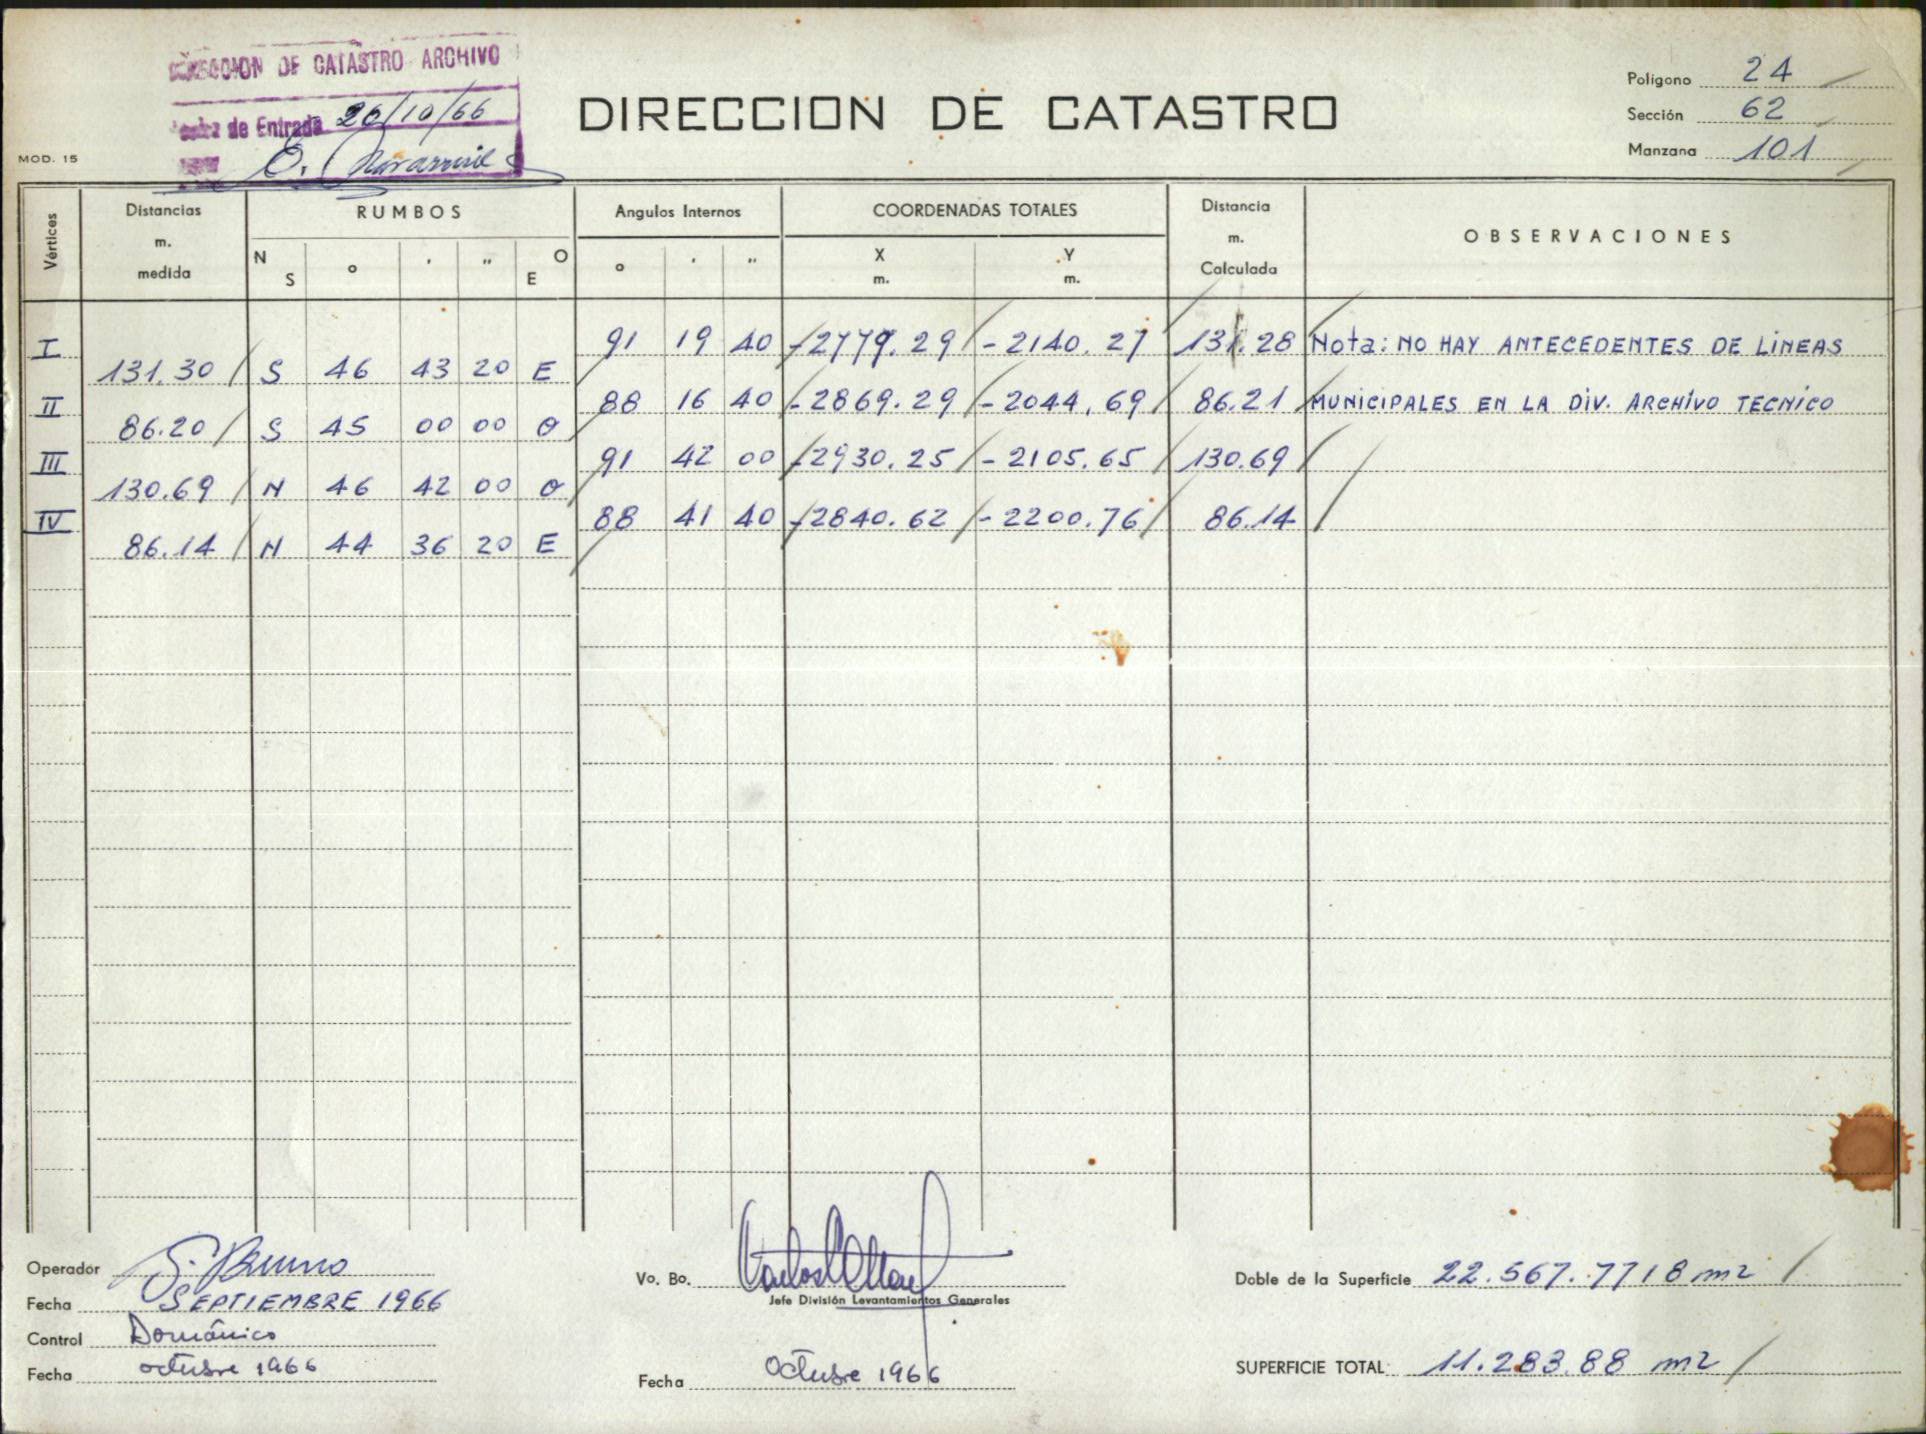 DIRECCION DE CATASTRO ARCHIVO
de Entrada 26/10/66
MOD. 15
DIRECCION DE CATASTRO
Polígono 24
Sección 62
Manzana 101
Vértices
Distancias m. medida
RUMBOS
N S ° ' " O E
Angulos Internos
° ' "
COORDENADAS TOTALES
X m. Y m.
Distancia m. Calculada
OBSERVACIONES
I 91 19 40 -2779.29 -2140.27 131.28 Nota: NO HAY ANTECEDENTES DE LINEAS
131.30 S 46 43 20 E
II 88 16 40 -2869.29 -2044.69 86.21 MUNICIPALES EN LA DIV. ARCHIVO TECNICO
86.20 S 45 00 00 O
III 91 42 00 -2930.25 -2105.65 130.69
130.69 N 46 42 00 O
IV 88 41 40 -2840.62 -2200.76 86.14
86.14 N 44 36 20 E
Operador S. Bruno
Fecha SEPTIEMBRE 1966
Control Doménico
Fecha octubre 1966
Vo. Bo.
Jefe División Levantamientos Generales
Fecha Octubre 1966
Doble de la Superficie 22.567.7718 m2
SUPERFICIE TOTAL 11.283.88 m2